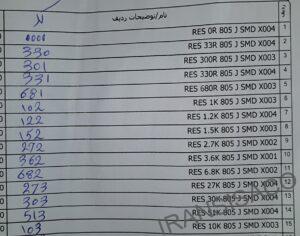 نام/توضیحات ردیف
RES 0R 805 J SMD X004 1
330 RES 33R 805 J SMD X004 2
301 RES 300R 805 J SMD X003 3
331 RES 330R 805 J SMD X004 4
681 RES 680R 805 J SMD X003 5
102 RES 1K 805 J SMD X004 6
122 RES 1.2K 805 J SMD X004 7
152 RES 1.5K 805 J SMD X003 8
272 RES 2.7K 805 J SMD X002 9
362 RES 3.6K 805 J SMD X001 10
682 RES 6.8K 805 J SMD X002 11
273 RES 27K 805 J SMD X004 12
303 RES 30K 805 J SMD X004 13
513 RES 51K 805 J SMD X004 14
103 RES 10K 805 J SMD X003 15
IRANSISACO